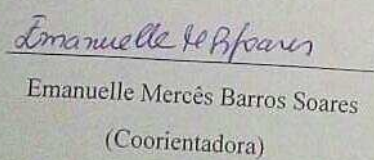 Emanuelle M B Soares
Emanuelle Mercês Barros Soares
(Coorientadora)